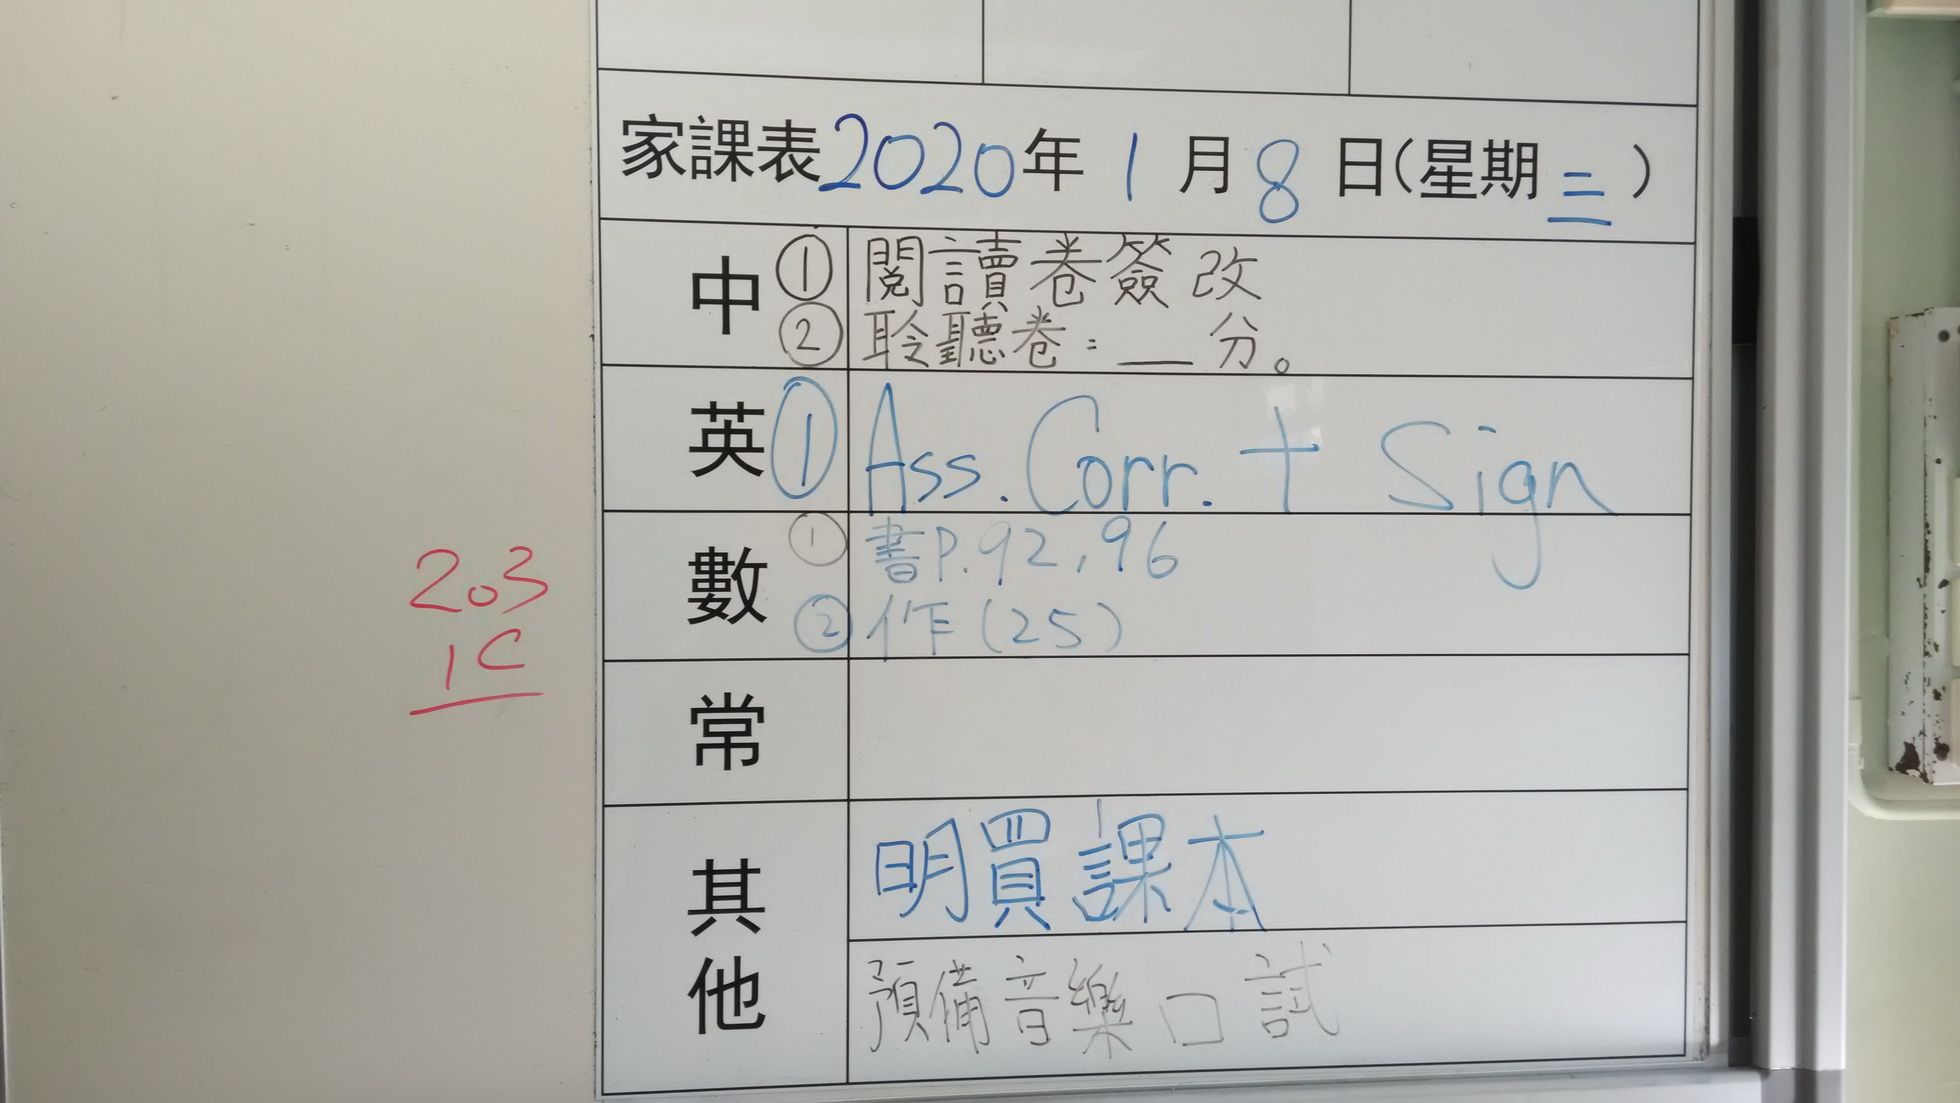 家課表2020年1月8日(星期三)
中 ① 閱讀卷簽改
② 聆聽卷:__分。
英 ① Ass. Corr. + Sign
數 ① 書P.92,96
② 作(25)
常
其他
明買課本
預備音樂口試
203
1C